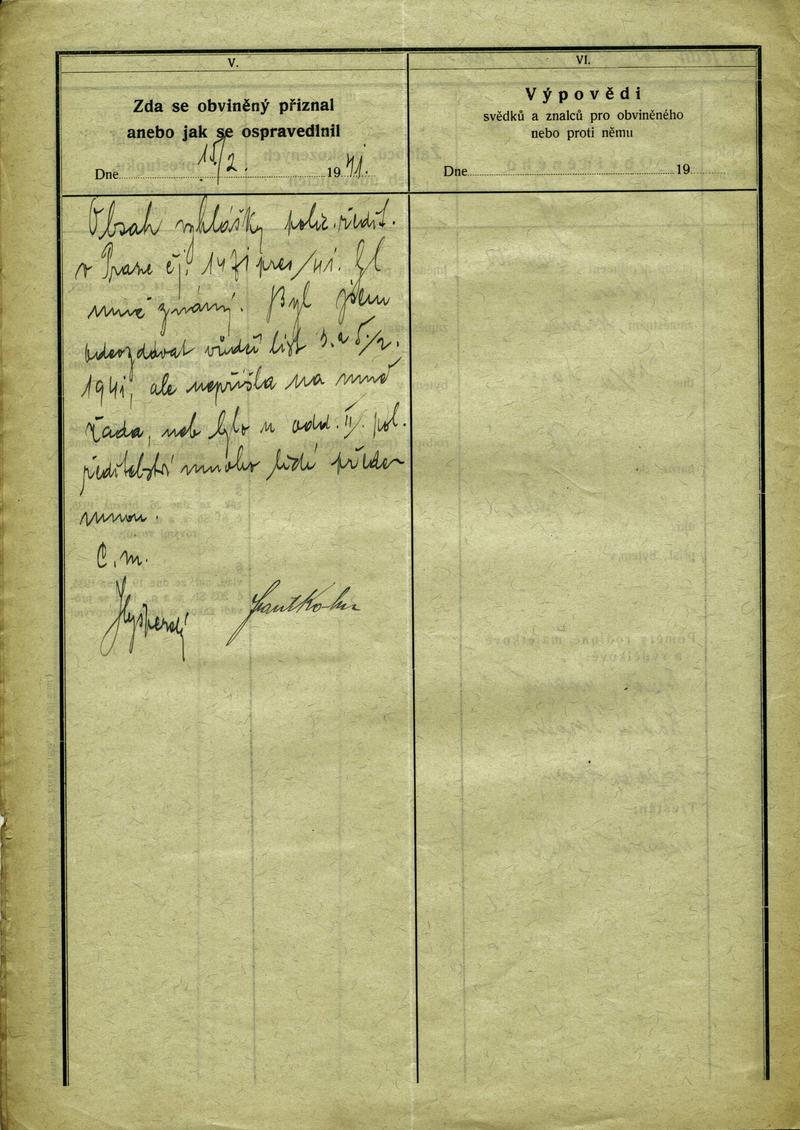 V.
Zda se obviněný přiznal
anebo jak se ospravedlnil
Dne 15/2. 1941.
Obsah vyhlášky polic. ředit.
v Praze čj. 1471 pres/41. byl
mně známý. Byl jsem
vůdčí list 3. a 5./2.
1941, ale nepřišla na mně
řada, neb bylo u odd. II/. pol.
ředitelství mnoho lidí přede
mnou.
Č. m.
VI.
Výpovědi
svědků a znalců pro obviněného
nebo proti němu
Dne 19